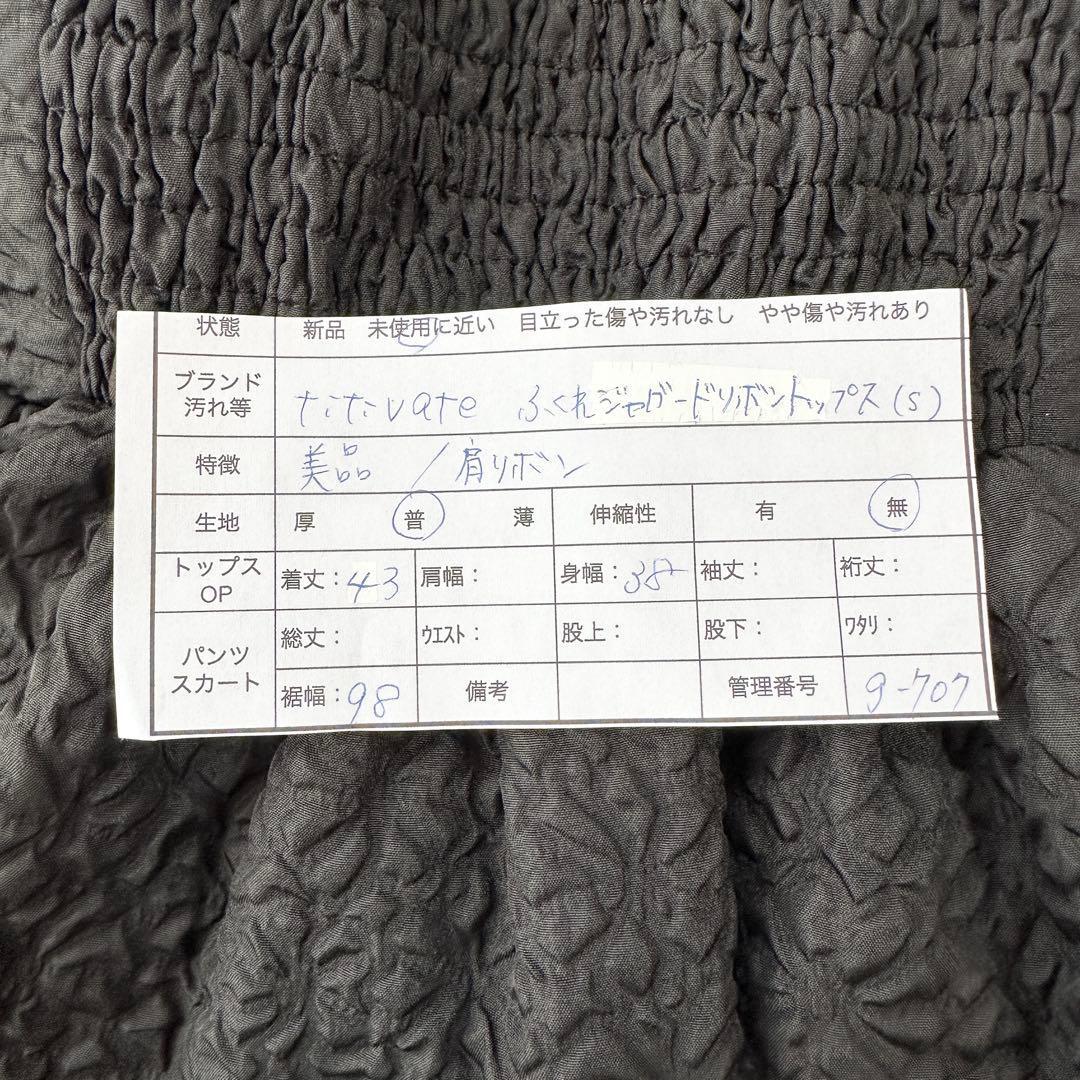 状態 新品 未使用に近い 目立った傷や汚れなし やや傷や汚れあり
ブランド
汚れ等 titivate ふくれジャガードリボントップス(S)
特徴 美品 / 肩リボン
生地 厚 普 薄 伸縮性 有 無
トップス
OP 着丈:43 肩幅: 身幅:38 袖丈: 裄丈:
パンツ
スカート 総丈: ウエスト: 股上: 股下: ワタリ:
裾幅:98 備考 管理番号 9-707